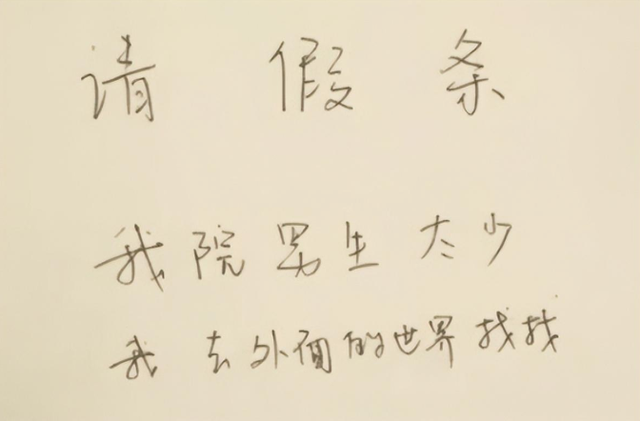 请假条
我院男生太少
我去外面的世界找找